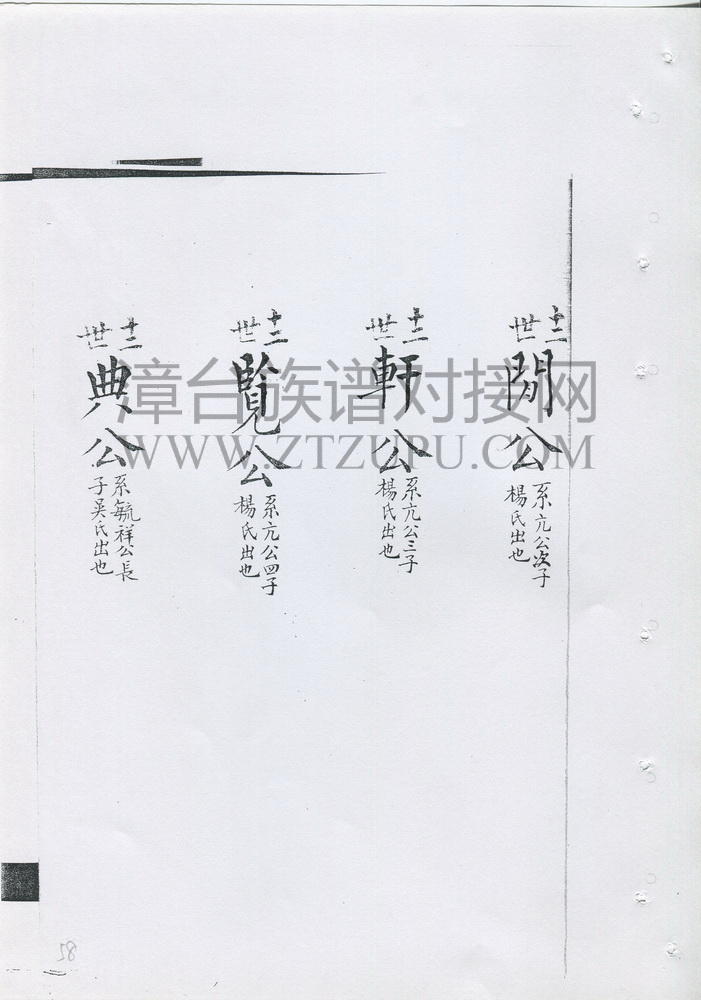 十二世
閱公
系亢公次子
楊氏出也
十二世
軒公
系亢公三子
楊氏出也
十二世
覽公
系亢公四子
楊氏出也
十二世
典公
系毓祥公長
子吴氏出也
漳台族谱对接网
WWW.ZTZUPU.COM
58